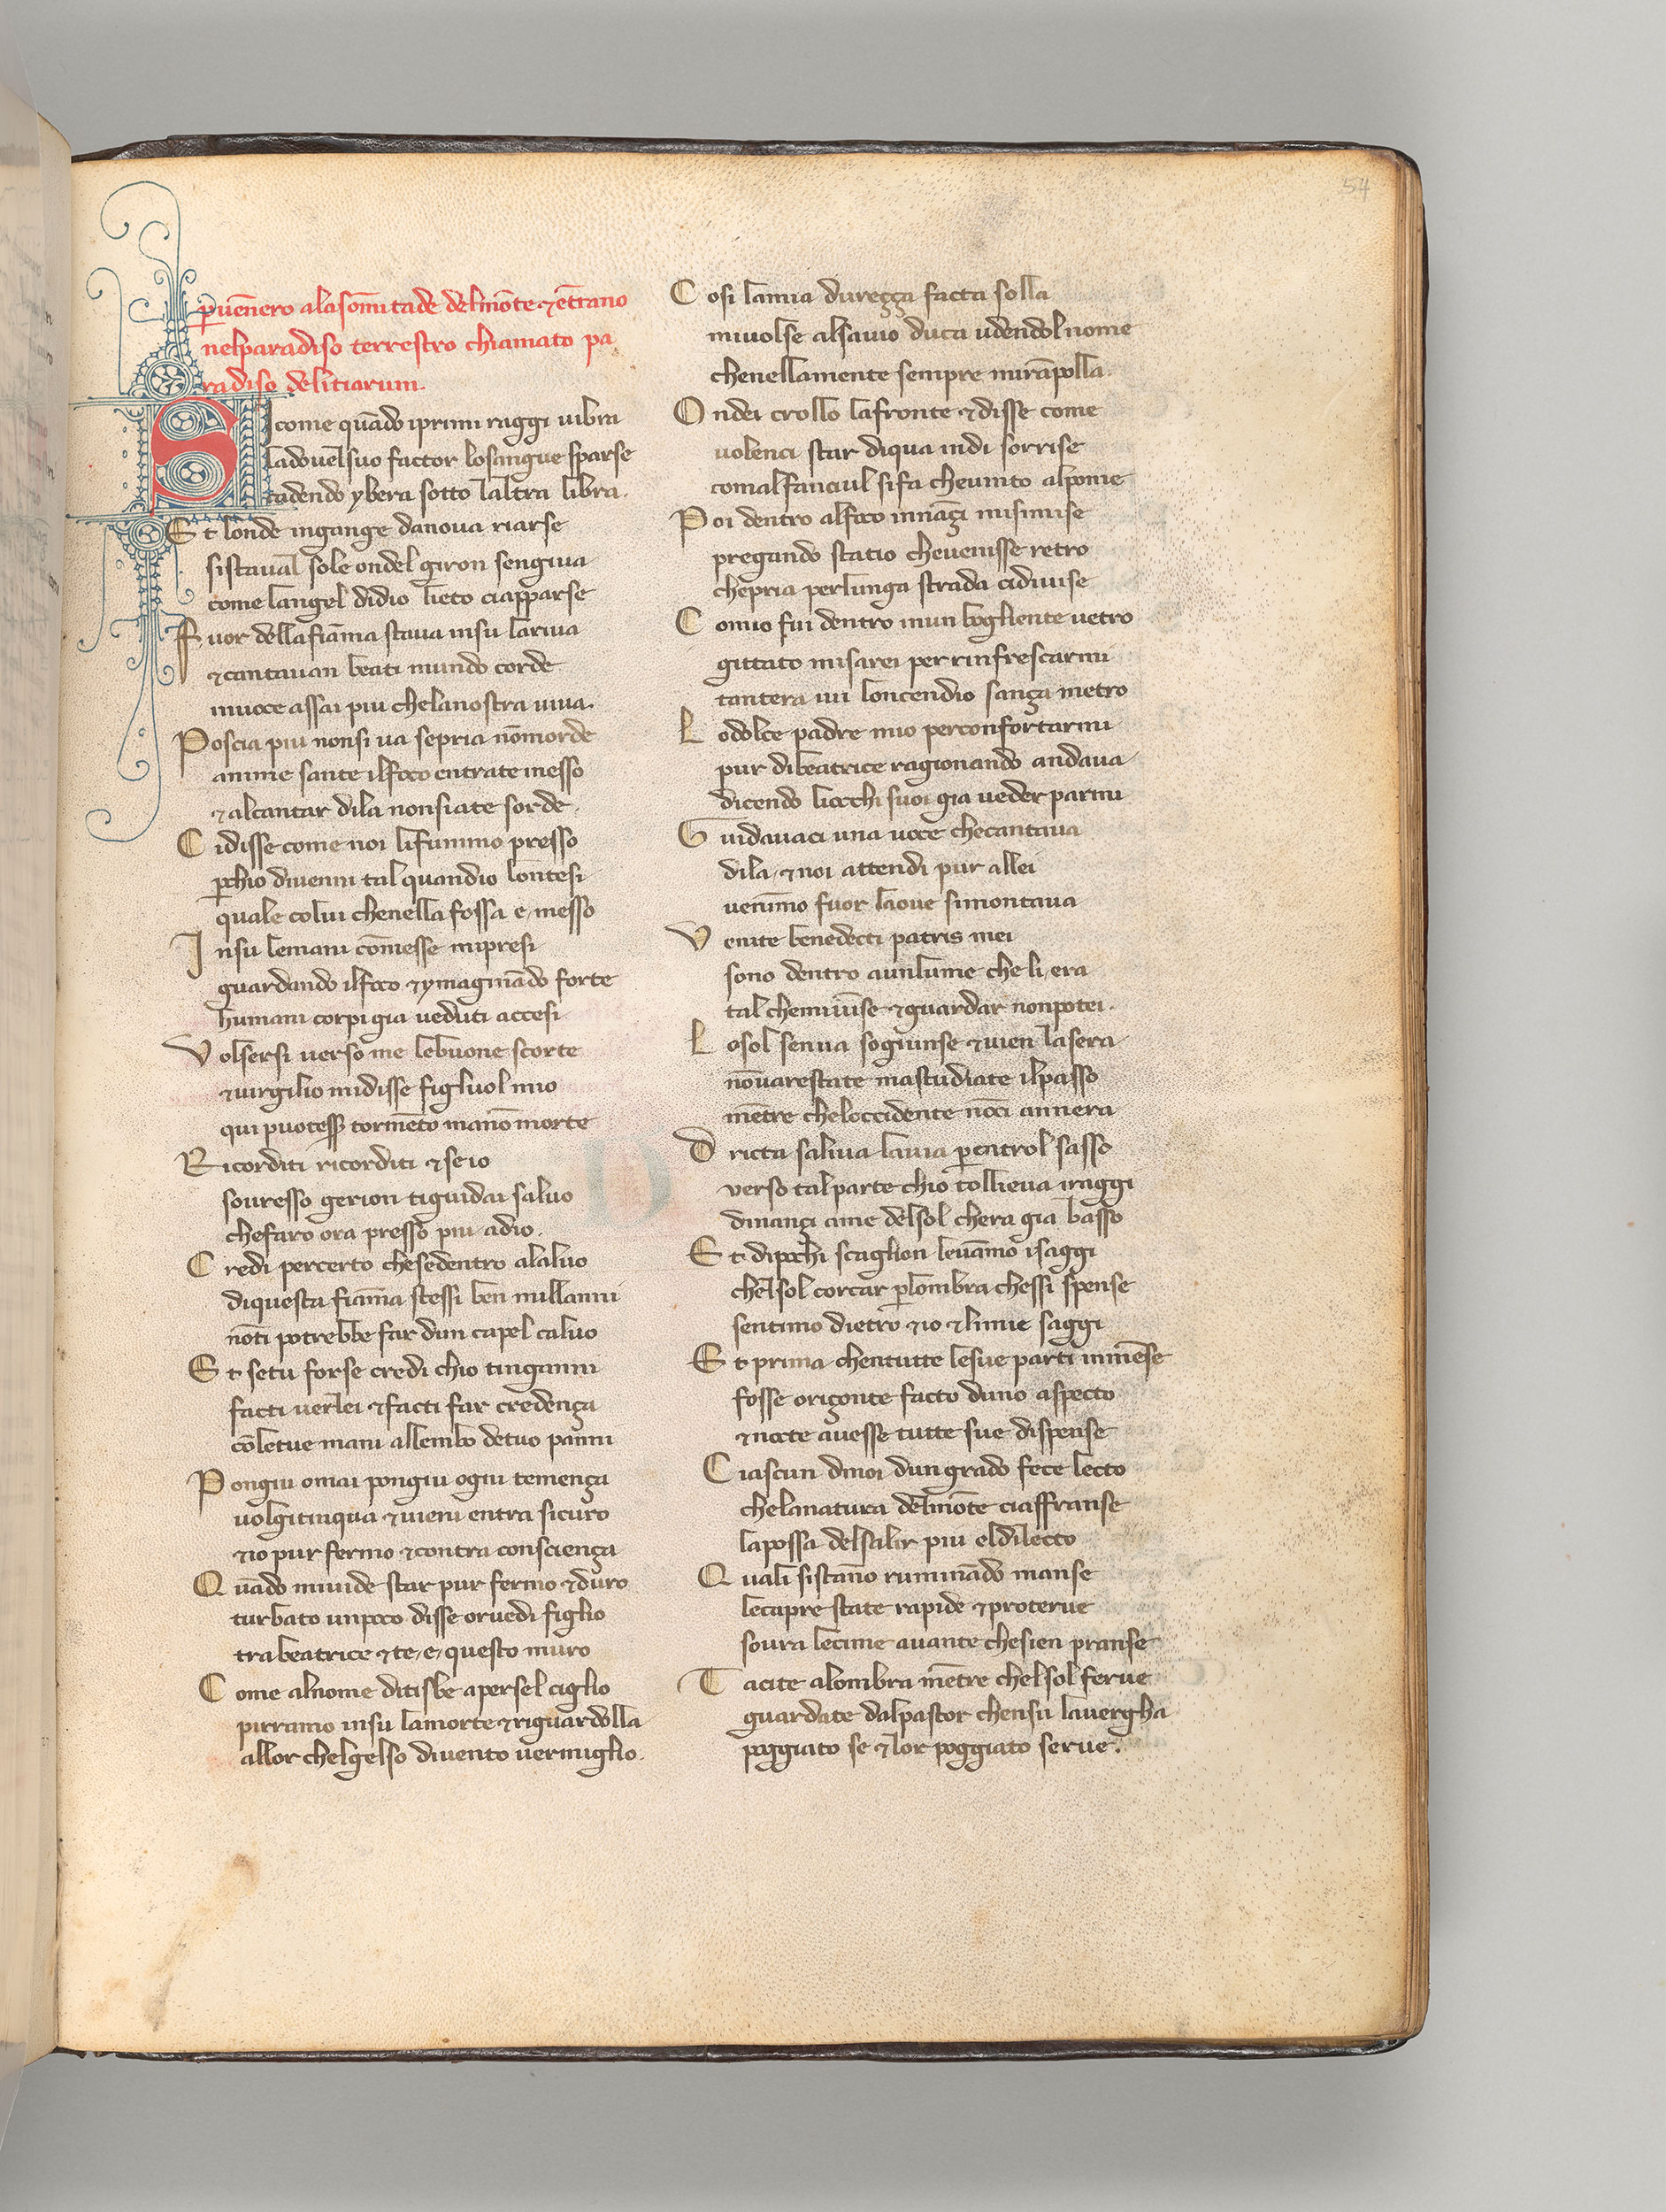 54
ꝑuēnero alasōmitade delmōte ⁊ ētrano
nelparadiso terrestro chiamato pa
radiso delitiarum.
Sicome quādo iprimi raggi uibra
ladouelsuo factor losangue sparse
cadendo ybera sotto laltra libra.
Et londe ingange danoua riarse
sistaual sole ondel giron sengiua
come langel didio lieto ciapparse
Fuor dellafiāma staua insu lariua
⁊ cantauan beati mundo corde
inuoce assai piu chelanostra uiua.
Poscia piu nonsi ua sepria nōmorde
anime sante ilfoco entrate inesso
⁊ alcantar dila nonsiate sorde.
Cidisse come noi lifummo presso
ꝑchio diuenni tal quandio lontesi
quale colui chenella fossa e, messo
Insu lemani cōmesse mipresi
guardando ilfoco ⁊ ymaginādo forte
humani corpi gia ueduti accesi
Volsersi uerso me lebuone scorte
⁊ uirgilio midisse figliuol mio
qui puotesẜ tormēto manō morte
Ricorditi ricorditi ⁊ se io
souresso gerion tiguidai saluo
chefaro ora presso piu adio.
Credi percerto chesedentro alaluo
diquesta fiāma stessi ben millanni
nōti potrebbe far dun capel caluo
Et setu forse credi chio tinganni
facti uerlei ⁊ facti far credença
cōletue mani allembo detuo panni
Pongiu omai pongiu ogni temença
uolgitinqua ⁊ uieni entra sicuro
⁊ io pur fermo ⁊ contra consciença
Quādo miuide star pur fermo ⁊ duro
turbato unpoco disse oruedi figlio
trabeatrice ⁊ te, e, questo muro
Come alnome ditisbe apersel ciglio
pirramo insu lamorte ⁊ riguardolla
allor chelgelso diuento uermiglio.
Cosi lamia durecça facta solla
miuolse alsauio duca udendolnome
chenellamente sempre mirāpolla.
Ondei crollo lafronte ⁊ disse come
uolenci star diqua indi sorrise
comalfanciul sifa cheuinto alpome
Poi dentro alfoco innāçi misimise
pregando statio cheuenisse retro
chepria perlunga strada cidiuise
Comio fui dentro inun bogliente uetro
gittato misarei per rinfrescarmi
tantera iui loncendio sança metro
Lodolce padre mio perconfortarmi
pur dibeatrice ragionando andaua
dicendo liocchi suoi gia ueder parmi
Guidauaci una uoce checantaua
dila, ⁊ noi attendi pur allei
uenimo fuor laoue simontaua
Venite benedecti patris mei
sono dentro aunlume che li, era
tal chemiuīse ⁊ guardar nonpotei.
Losol senua sogiunse ⁊ uien lasera
nōuarestate mastudiate ilpasso
mētre cheloccidente nōci annera
Dricta saliua lauia ꝑentrol sasso
verso talparte chio tollieua iraggi
dinançi ame delsol chera gia basso
Et dipochi scaglion leuāmo isaggi
chelsol corcar ꝑlombra chessi spense
sentimo dietro ⁊ io ⁊ limie saggi
Et prima chentutte lesue parti inmēse
fosse oriçonte facto duno aspecto
⁊ nocte auesse tutte sue dispense
Ciascun dinoi dungrado fece lecto
chelanatura delmōte ciaffranse
lapossa delsalir piu eldilecto
Quali sistanno ruminādo manse
lecapre state rapide ⁊ proterue
soura lecime auante chesien pranse
Tacite alombra mētre chelsol ferue
guardate dalpastor chensu lauergha
poggiato se ⁊ lor poggiato serue.